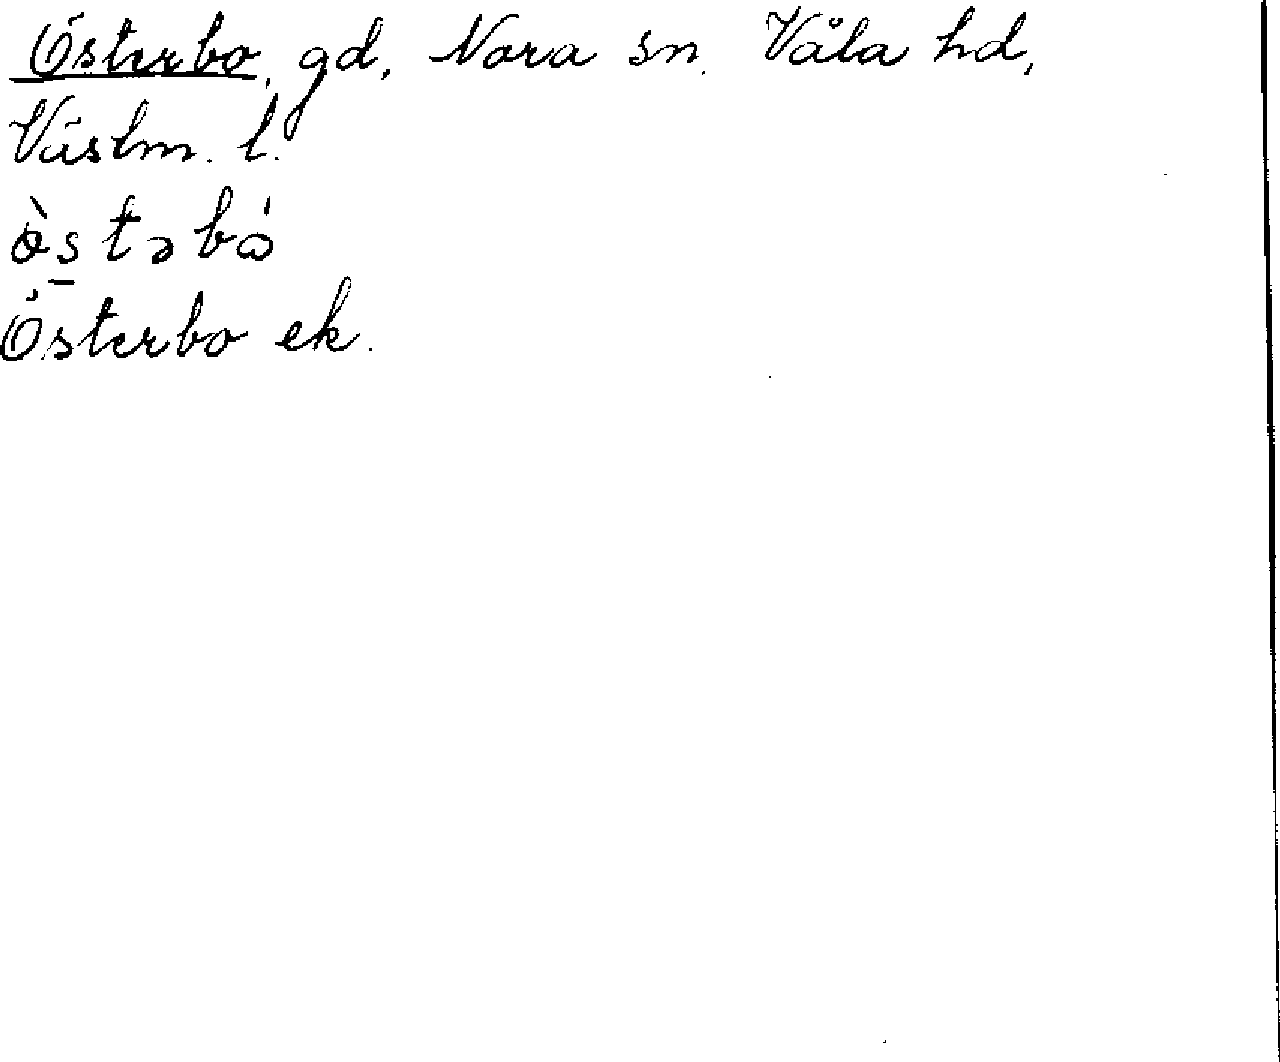 Österbo, gd, Nora sn. Våla hd,
Västm. l.
ò̀stəbó
Österbo ek.